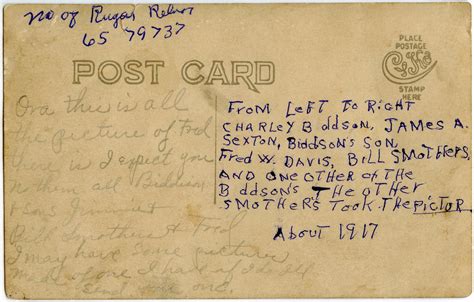 no of Rugas
65 79737
PLACE
POSTAGE
STAMP
HERE
POST CARD
Ora this is all
the picture of Fred
there is I expect you
all Biddson
Bill Smothers & Fred
I may have some pictures
made of one I have of
send one.
FROM LEFT TO RIGHT
CHARLEY BiddSON, JAMES A.
SEXTON, BIDDSON'S SON,
FRED W. DAVIS, BILL SMOTHERS,
AND ONE OTHER OF THE
BiddSONS THE OTHER
SMOTHERS TOOK THE PICTUR
ABOUT 1917